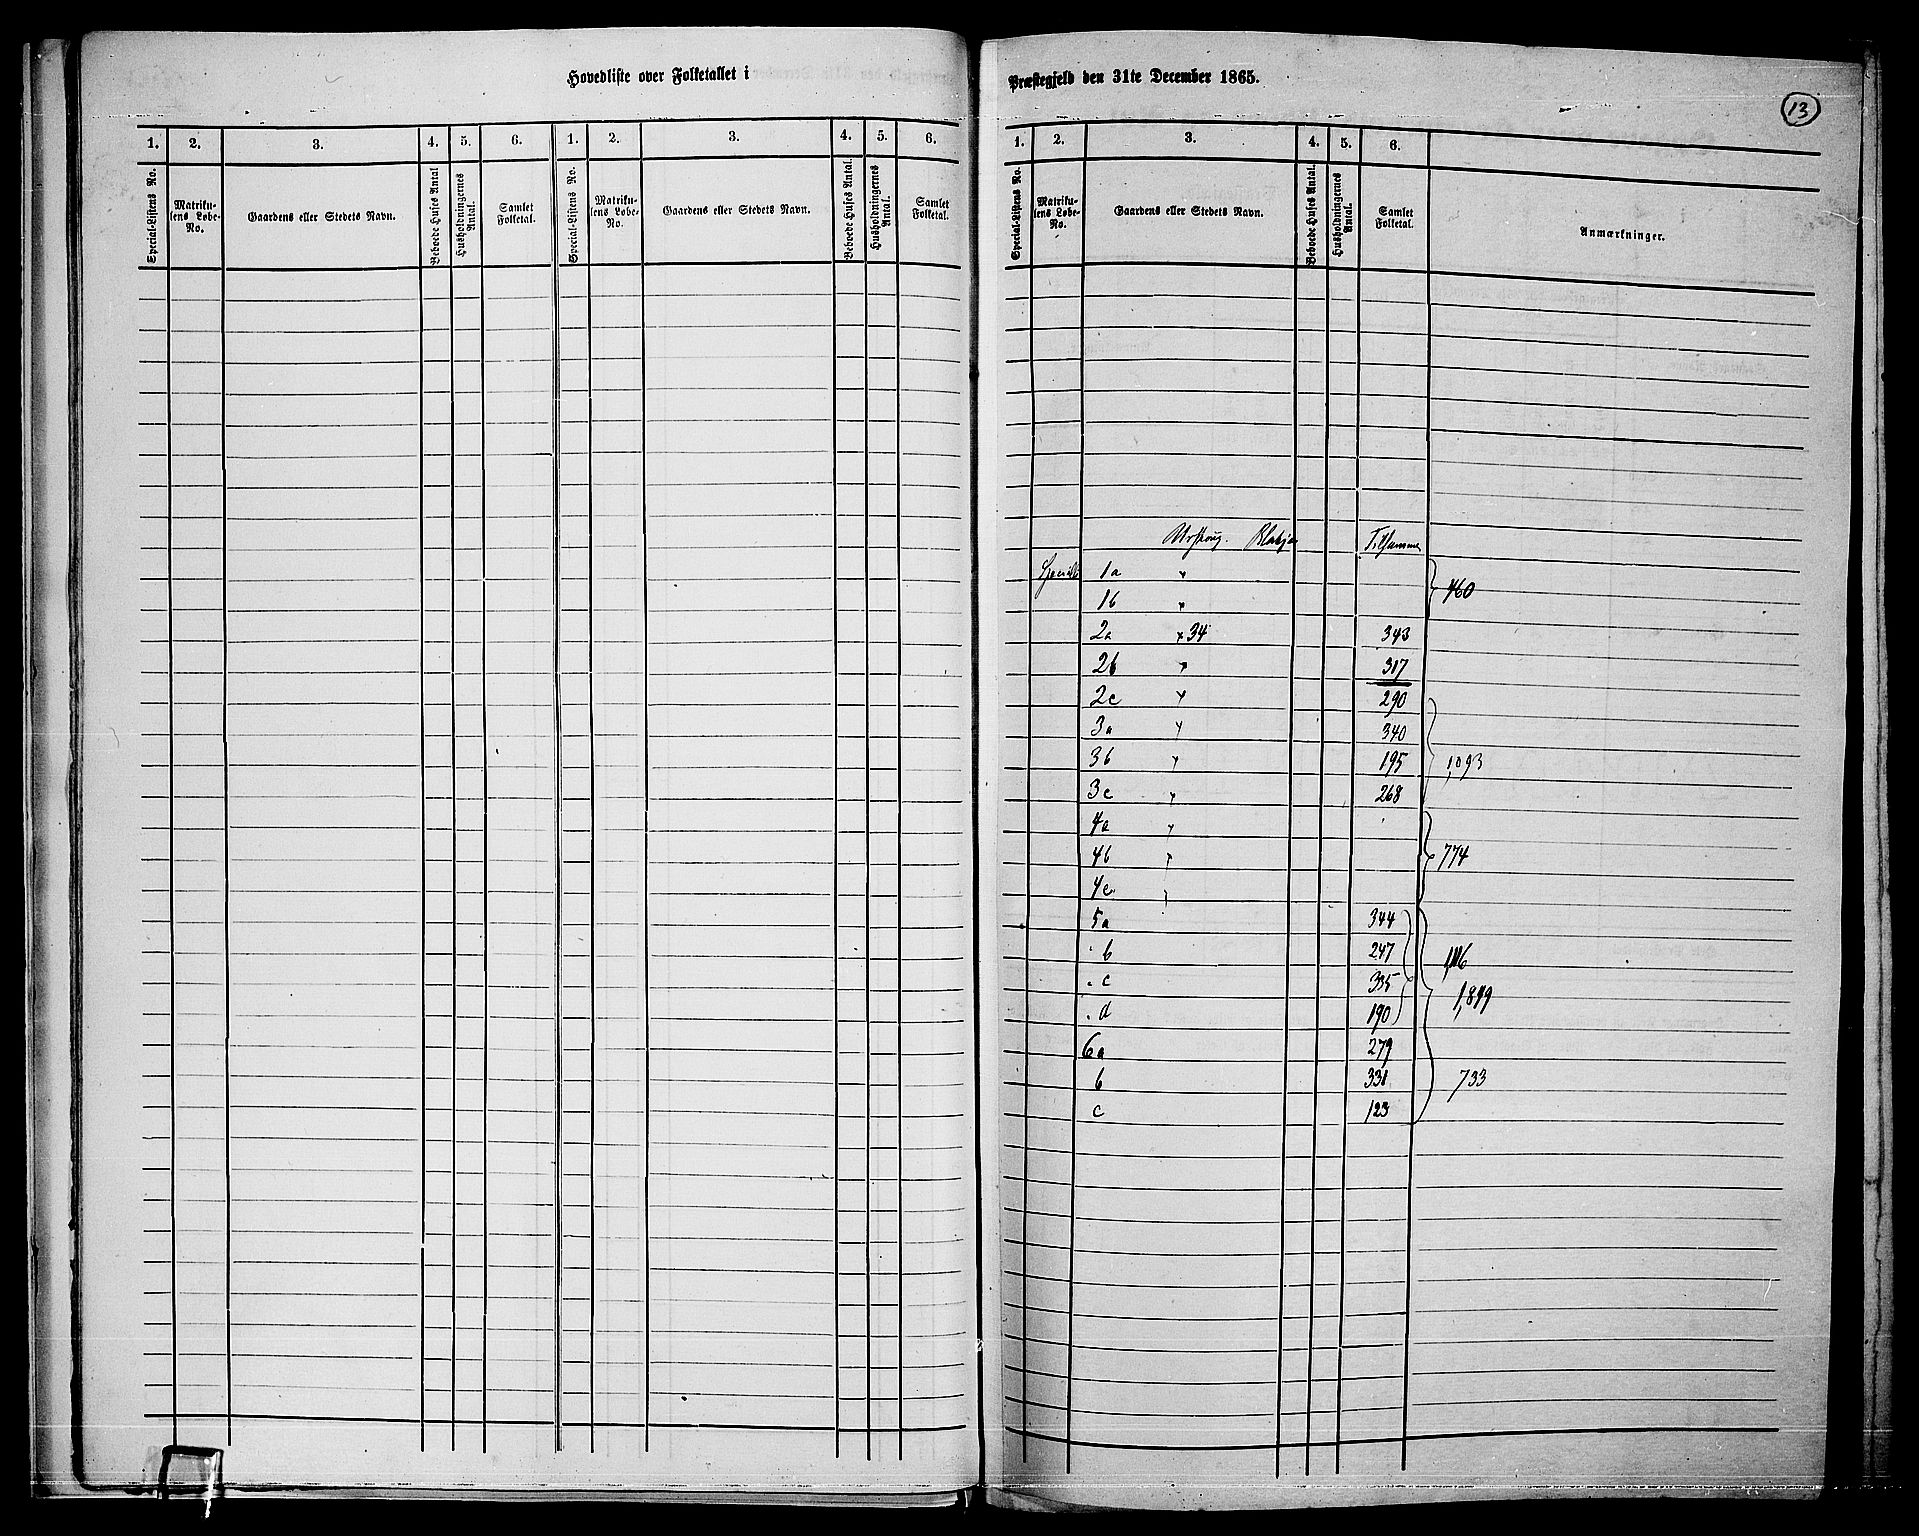 Hovedliste over Folketallet i
1. 2. 3. 4. 5. 6. 1. 2. 3. 4. 5. 6.
Special-Listens No. Matrikulens Løbe-No. Gaardens eller Stedets Navn. Beboede Huses Antal. Husholdningernes Antal. Samlet Folketal. Special-Listens No. Matrikulens Løbe-No. Gaardens eller Stedets Navn. Beboede Huses Antal. Husholdningernes Antal. Samlet Folketal.
Præstegjeld den 31te December 1865.
13
1. 2. 3. 4. 5. 6.
Special-Listens No. Matrikulens Løbe-No. Gaardens eller Stedets Navn. Beboede Huses Antal. Husholdningernes Antal. Samlet Folketal. Anmærkninger.
Urskoug. Tilsammen
1a "
760
1b "
2a " 34 343
2b " 317
2c " 290
3a " 340
3b " 195 1,093
3c " 268
4a "
4b " 774
4c "
5a 344
" b 247 1,116
" c 335
1,849
" d 190
6a 279
b 331 733
c 123